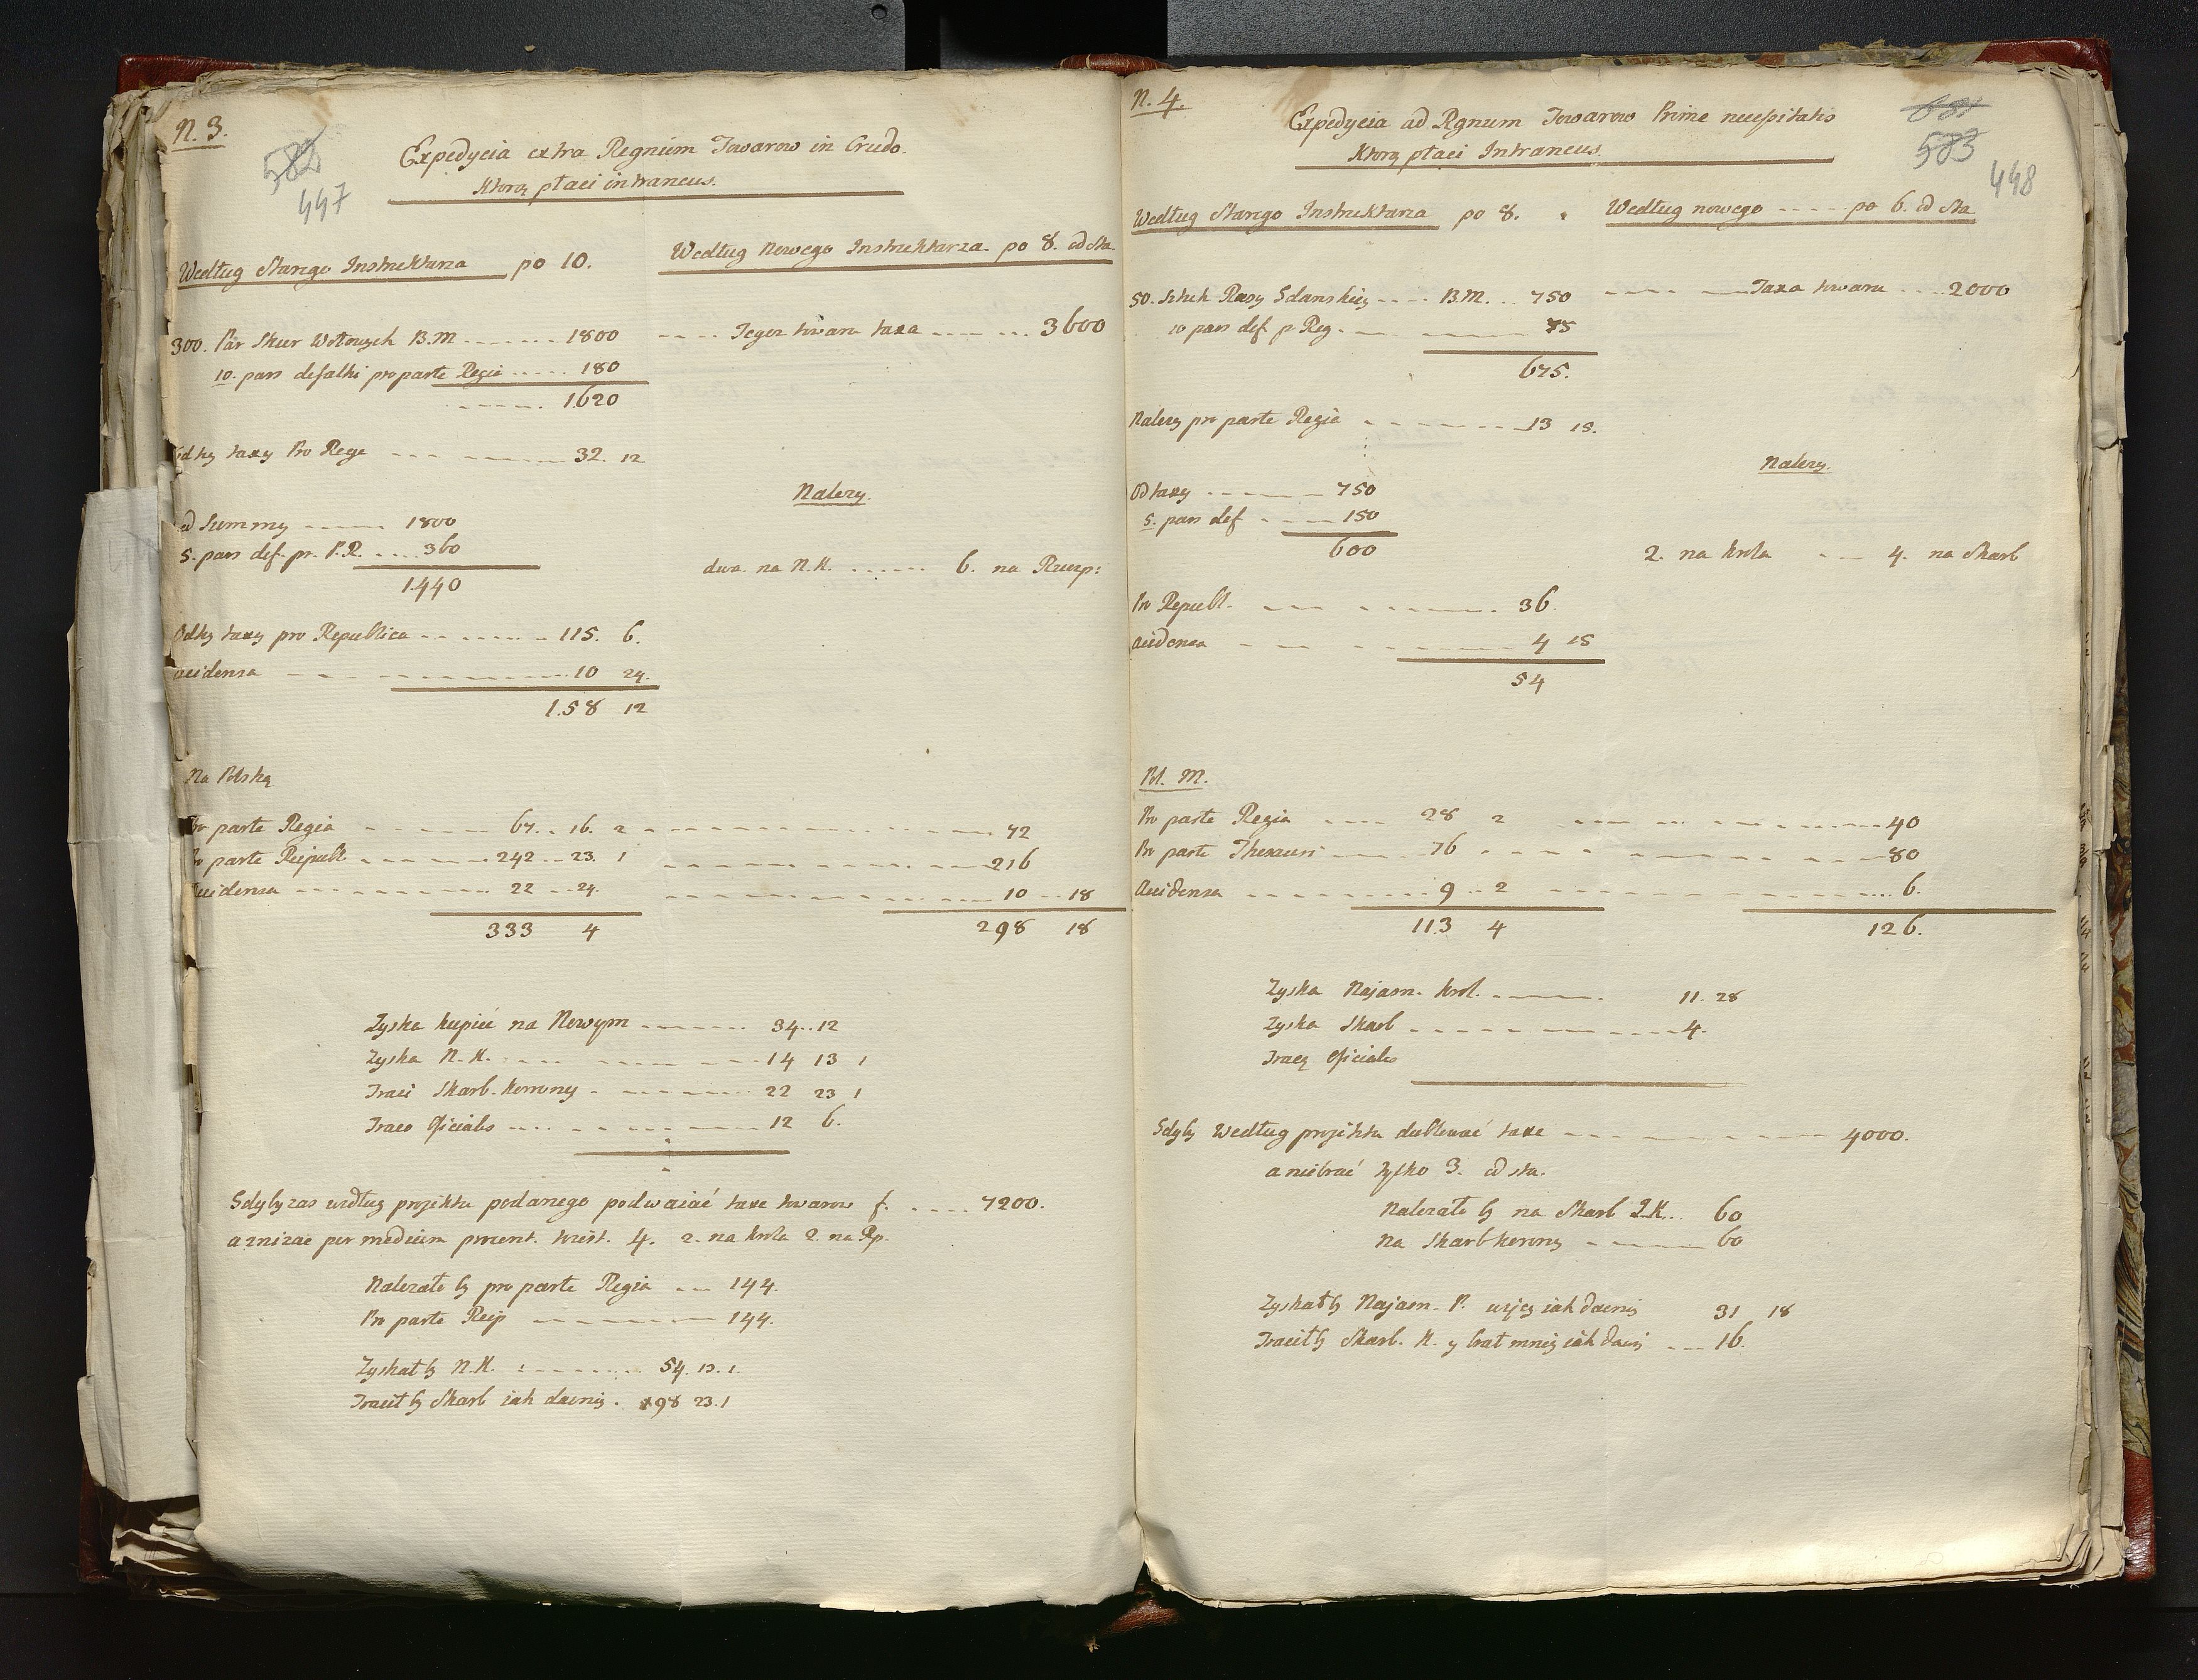 N. 3.
582
447
Expedycia extra Regnum Towarow in Crudo.
Ktorą płaci intraneus.
Według Starego Instruktarza po 10.
Według Nowego Instruktarza po 8. od sta.
300. Par Skur Wołowych B.M. 1800
Tegoz towaru taxa 3600
10. pars defalki pro parte Regia 180
1620
Od tey taxy Pro Rege 32. 12
Nalezy.
od Summy 1800
5. pars def. pr. P.R. 360
1440
dwa na N.K. 6. na Rzczp:
Od tey taxy pro Republica 115. 6.
Accidensa 10 24.
158 12
Na Polską
Pro parte Regia 67. 16. 2 72
Pro parte Reipubl 242 23. 1 216
Accidensa 22 24. 10 18
333 4 298 18
Zyska kupiec na Nowym 34. 12
Zyska N.K. 14 13 1
Traci Skarb. Koronny 22 23 1
Traco Oficialis 12 6.
Gdyby zas według projektu podanego podwaiać taxe towarow f. 7200.
a znizac per medium procent. to iest. 4. 2. na krola 2. na Rp.
Nalezałe by pro parte Regia 144.
Pro parte Reip 144.
Zyskał by N.K. 54. 13. 1.
Tracił by Skarb iak dawniy. 98 23. 1
N. 4.
583
448
Expedycia ad Regnum Towarow Prime necessitatis
Ktorą płaci Intraneus.
Według Starego Instruktarza po 8.
Według nowego po 6. od sta
50. sztuk Rasy Gdanskiey B.M. 750
Taxa towaru 2000
10 pars def. p Reg. 75
675.
Nalezy pro parte Regia 13 15.
Nalezy.
Od taxy 750
5. pars def 150
600
2. na krola 4. na Skarb
Pro Republ. 36.
Accidensa 4 15
54
Pol. M.
Pro parte Regia 28 2 40
Pro parte Thesauri 76 80
Accidensa 9 2 6.
113 4 126.
Zyska Najasn. Krol. 11. 28
Zyska Skarb 4.
Tracą Oficialis
Gdyby Według projektu dublować taxe 4000.
a nie brać tylko 3. od sta.
Nalezałe by na Skarb J.K. 60
na Skarb koronny 60
Zyskałby Najasn. P. więcy iak dawniy 31 18
Traciłby Skarb. K. y brał mniey iak dawniy 16.